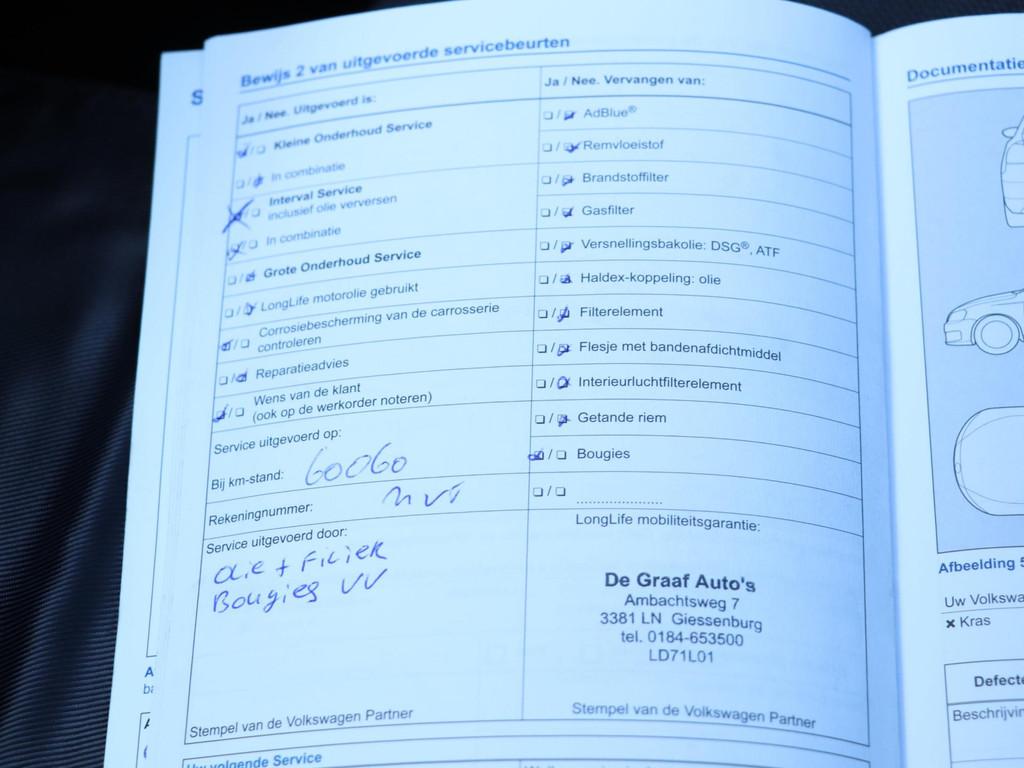 Bewijs 2 van uitgevoerde servicebeurten
S
Ja / Nee. Uitgevoerd is:
Kleine Onderhoud Service
In combinatie
Interval Service
inclusief olie verversen
In combinatie
Grote Onderhoud Service
LongLife motorolie gebruikt
Corrosiebescherming van de carrosserie
controleren
Reparatieadvies
Wens van de klant
(ook op de werkorder noteren)
Service uitgevoerd op:
Bij km-stand: 60060
Rekeningnummer:
Service uitgevoerd door:
Olie + Filter
Bougies VV
Stempel van de Volkswagen Partner
Uw volgende Service
Ja / Nee. Vervangen van:
AdBlue®
Remvloeistof
Brandstoffilter
Gasfilter
Versnellingsbakolie: DSG®, ATF
Haldex-koppeling: olie
Filterelement
Flesje met bandenafdichtmiddel
Interieurluchtfilterelement
Getande riem
Bougies
LongLife mobiliteitsgarantie:
De Graaf Auto's
Ambachtsweg 7
3381 LN Giessenburg
tel. 0184-653500
LD71L01
Stempel van de Volkswagen Partner
Documentatie
Afbeelding 5
Uw Volkswa
× Kras
Defecte
Beschrijvin